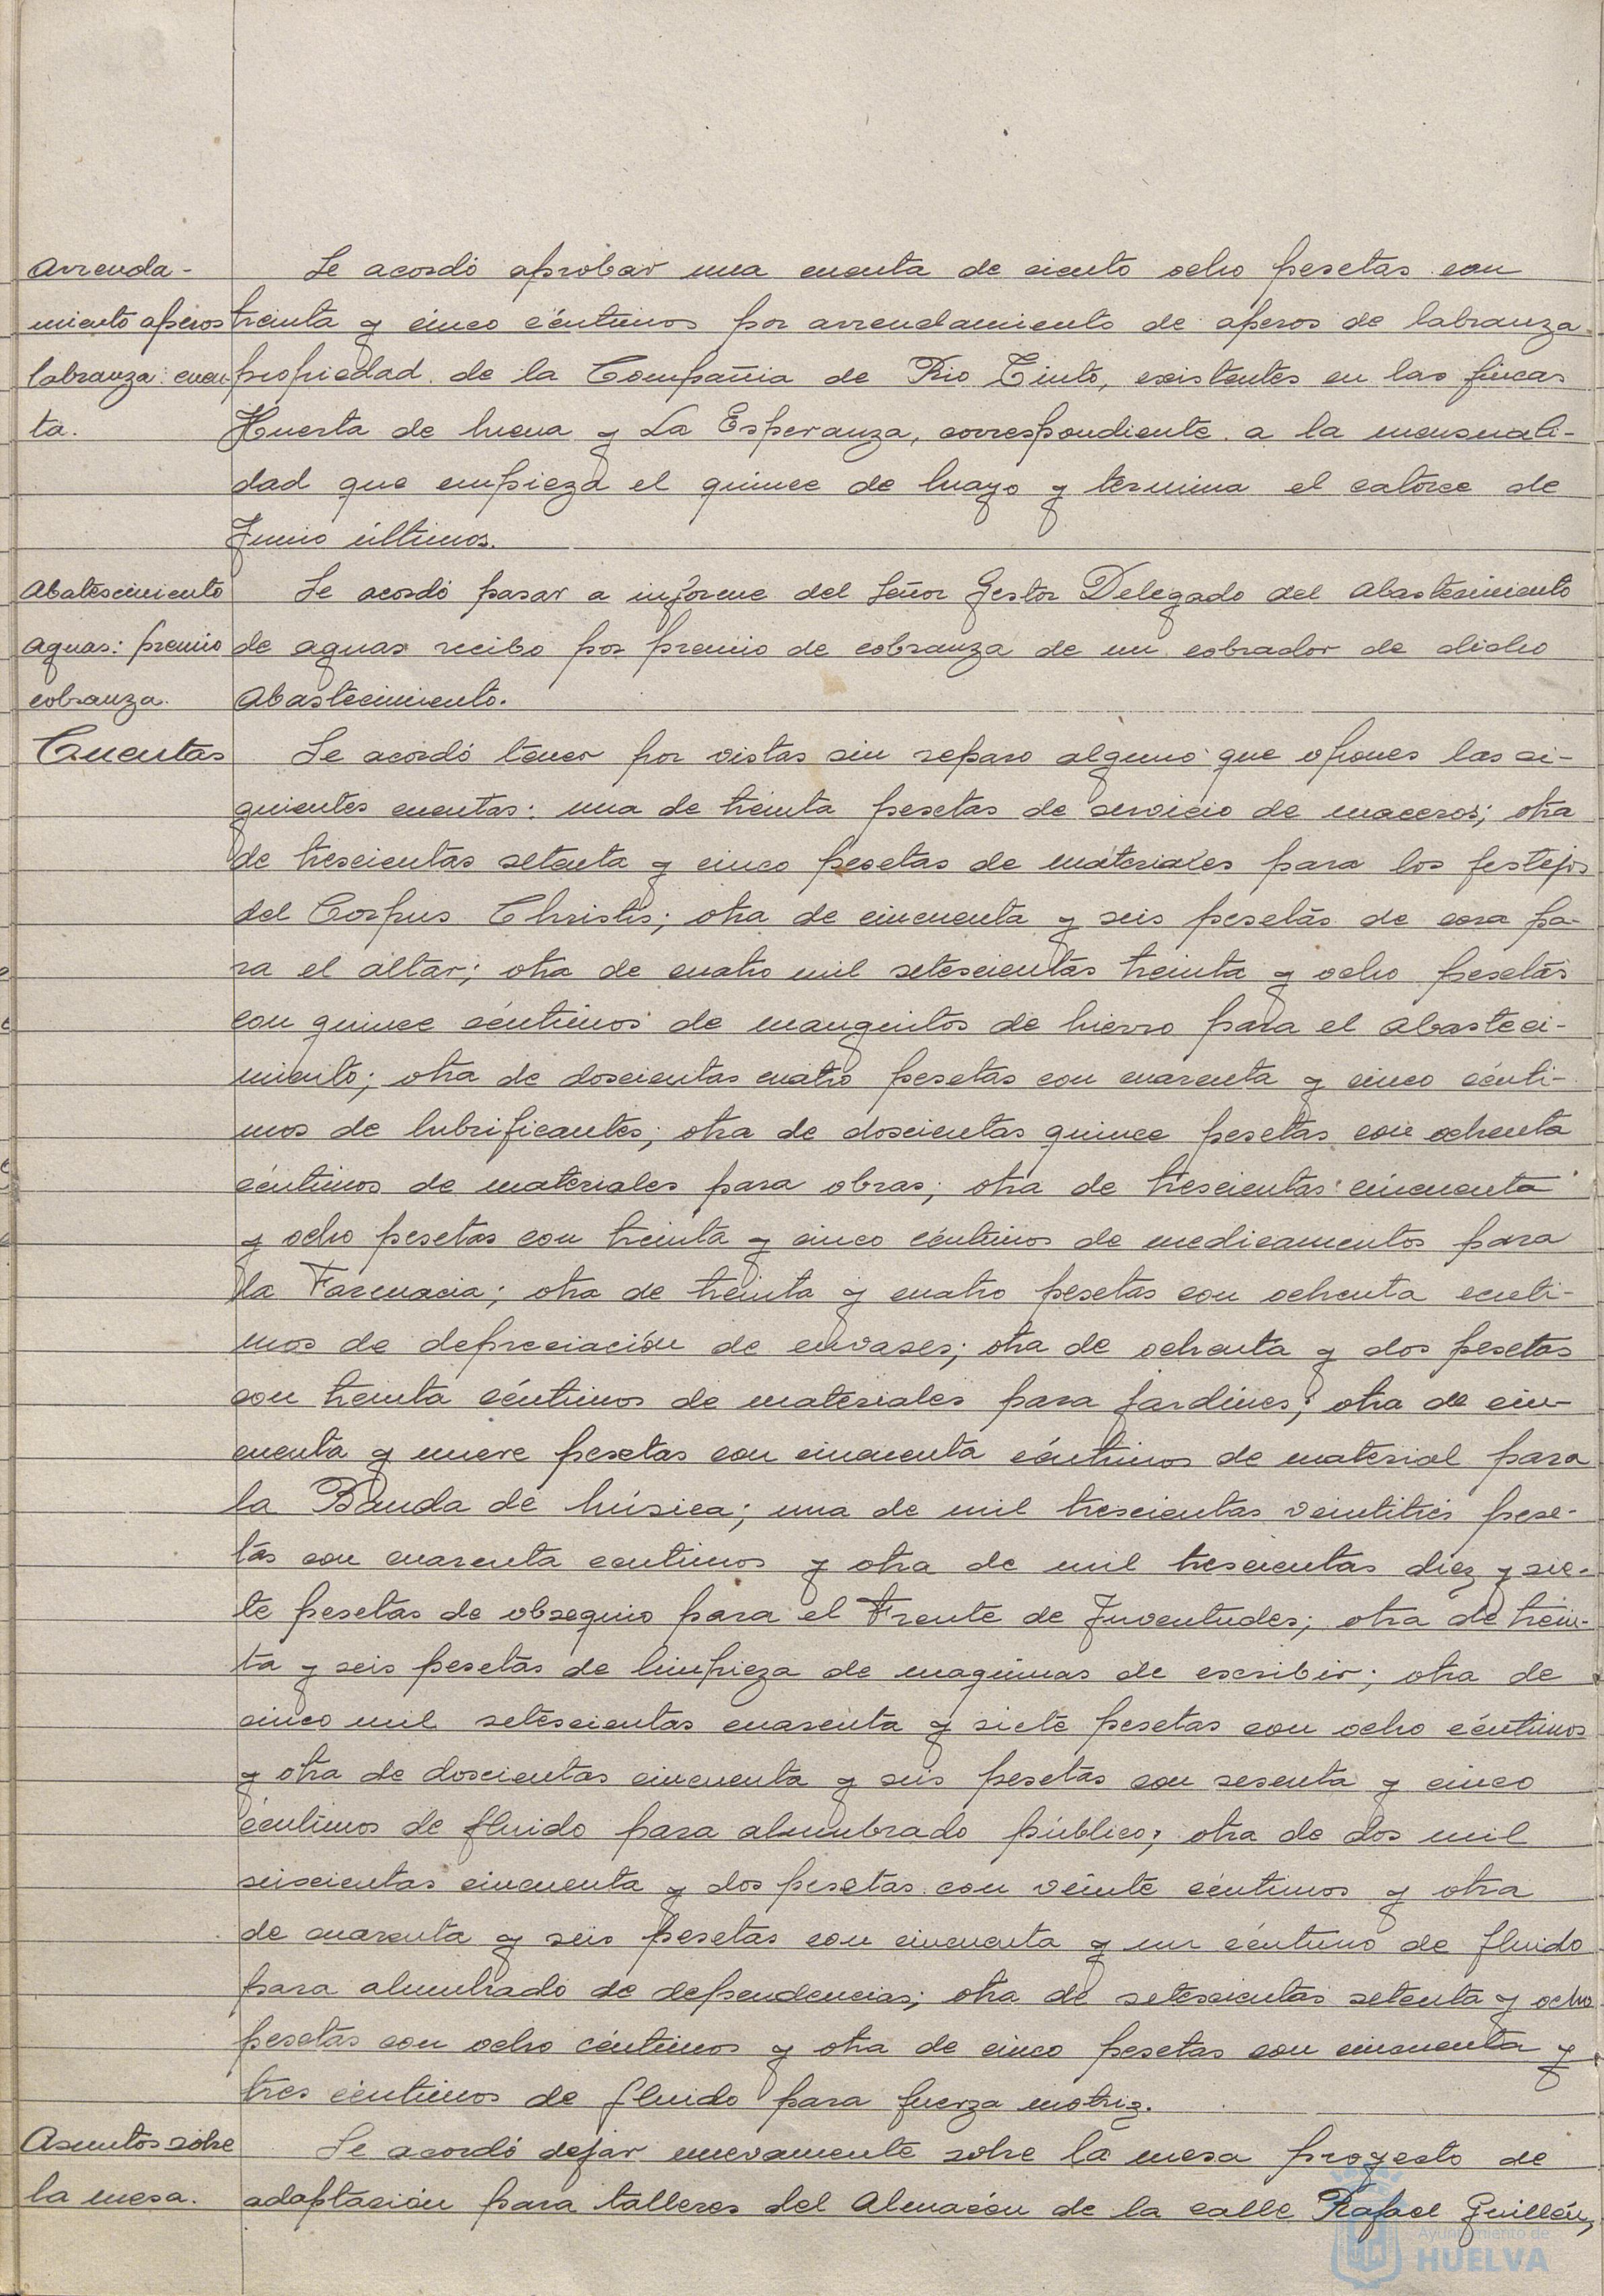 Arrenda-
miento aperos
labranza: cuen-
ta.
Se acordó aprobar una cuenta de ciento ocho pesetas con
treinta y cinco céntimos por arrendamiento de aperos de labranza
propiedad de la Compañia de Rio Tinto, existentes en las fincas
Huerta de Mena y La Esperanza, correspondiente a la mensuali-
dad que empieza el quince de Mayo y termina el catorce de
Junio últimos.
Abatesimiento
aguas: premio
cobranza.
Se acordó pasar a informe del Señor Gestor Delegado del Abastecimiento
de aguas recibo por premio de cobranza de un cobrador de dicho
Abastecimiento.
Cuentas
Se acordó tener por vistas sin reparo alguno que oponer las si-
guientes cuentas: una de treinta pesetas de servicio de maceros; otra
de trescientas setenta y cinco pesetas de materiales para los festejos
del Corpus Christis; otra de cincuenta y seis pesetas de cera pa-
ra el altar; otra de cuatro mil setescientas treinta y ocho pesetas
con quince céntimos de manguitos de hierro para el Abasteci-
miento; otra de doscientas cuatro pesetas con cuarenta y cinco cénti-
mos de lubrificantes; otra de doscientas quince pesetas con ochenta
céntimos de materiales para obras; otra de trescientas cincuenta
y ocho pesetas con treinta y cinco céntimos de medicamentos para
la Farmacia; otra de treinta y cuatro pesetas con ochenta centi-
mos de depreciación de envases; otra de ochenta y dos pesetas
con treinta céntimos de materiales para jardines; otra de cin-
cuenta y nueve pesetas con cincuenta céntimos de material para
la Banda de Música; una de mil trescientas veintitrés pese-
tas con cuarenta centimos y otra de mil trescientas diez y sie-
te pesetas de obsequio para el Frente de Juventudes; otra de trein-
ta y seis pesetas de limpieza de maquinas de escribir; otra de
cinco mil setescientas cuarenta y siete pesetas con ocho céntimos
y otra de doscientas cincuenta y seis pesetas con sesenta y cinco
céntimos de fluido para alumbrado público; otra de dos mil
seiscientas cincuenta y dos pesetas con veinte céntimos y otra
de cuarenta y seis pesetas con cincuenta y un céntimo de fluido
para alumbrado de dependencias; otra de setescientas setenta y ocho
pesetas con ocho céntimos y otra de cinco pesetas con cincuenta y
tres céntimos de fluido para fuerza motriz.
Asuntos sobre
la mesa.
Se acordó dejar nuevamente sobre la mesa proyecto de
adaptación para talleres del Almacén de la calle Rafael Guillén,
Ayuntamiento de
HUELVA